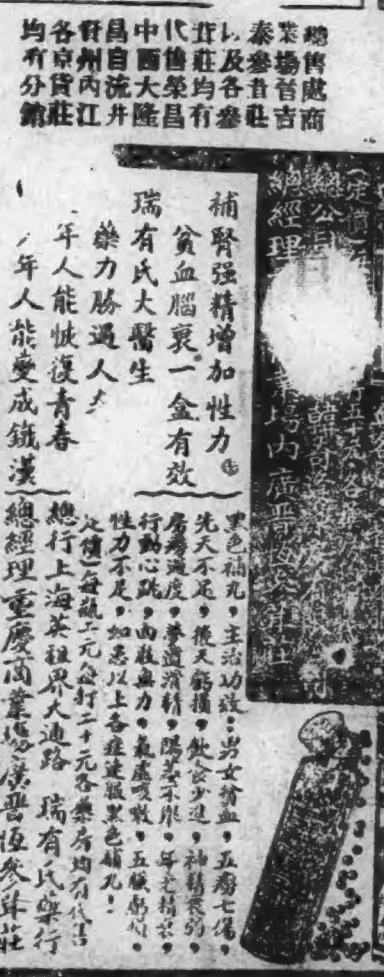 總售處商
業場晉吉
泰參茸莊
以及各參
茸莊均有
代售榮昌
中西大隆
昌自流井
州內江
各京貨莊
均有分館
(定價)
總公司
總經理 業場內廣晉恆參茸莊
補腎强精增加性力
貧血腦衰一盒有效
瑞有氏大醫生
藥力勝過人
年人能恢復青春
年人能變成鐵漢
黑色補丸,主治功效:男女貧血,五癆七傷,
先天不足,後天虧損,飲食少進,神精衰弱,
房癆過度,夢遺滑精,陽萎不舉,年老精衰,
行動心跳,四肢無力,氣虛咳嗽,五臟虧損,
性力不足,如患以上各症速服黑色補丸!
定價)每瓶二元每打二十元各藥房均有代售
總行上海英租界大通路 瑞有氏藥行
總經理重慶商業場廣晉恆參茸莊